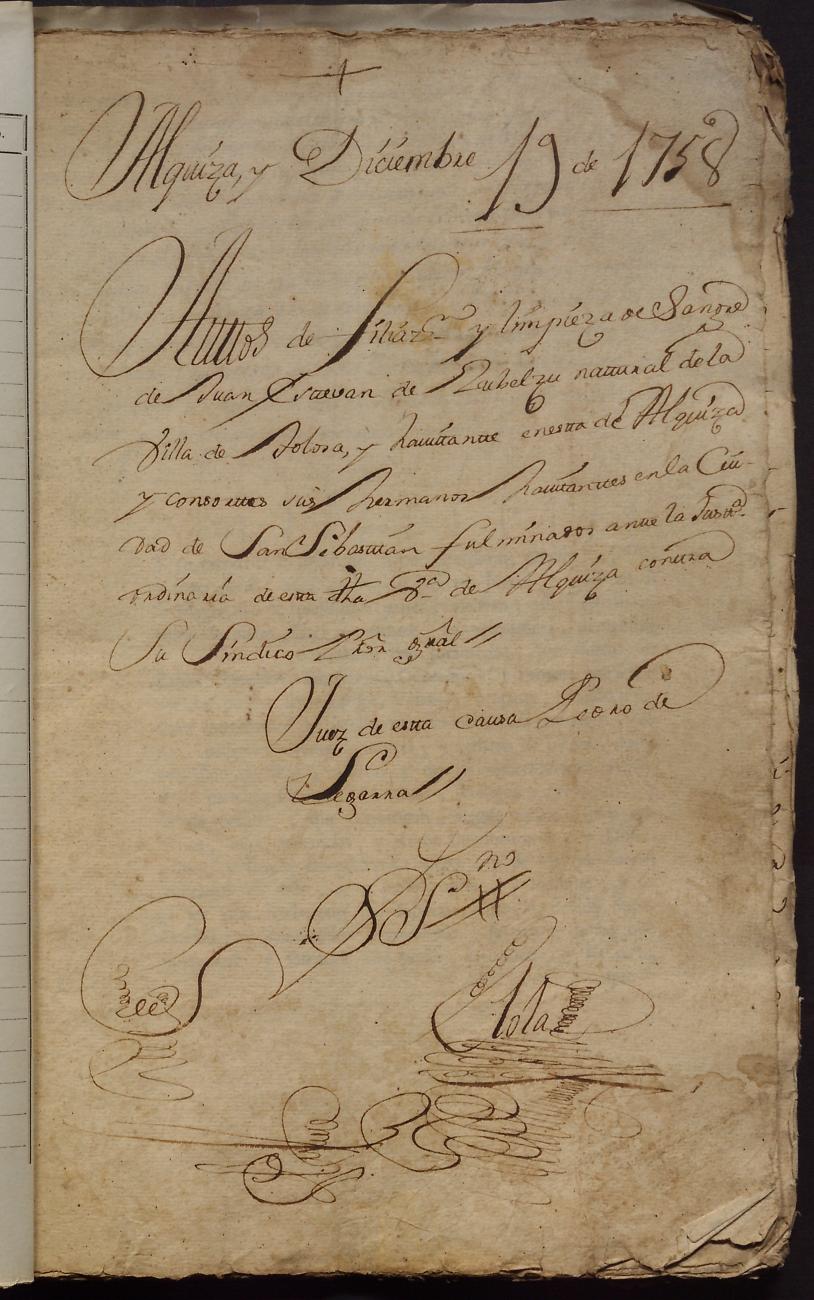 Alquiza, y Diciembre 19 de 1758
Auttos de filiaz.on y limpieza de Sangre
de Juan Esttevan de Zubelzu nattural de la
Villa de Tolosa, y havittante en estta de Alquiza
y consorttes sus hermanos havitanttes en la Ciu-
dad de San Sebasttian fulminados antte la Justt.a
ordinaria de estta dha V.a de Alquiza conttra
Su Sindico Pror gral //
Juez de estta causa Pedro de
Legarra //
SS.no